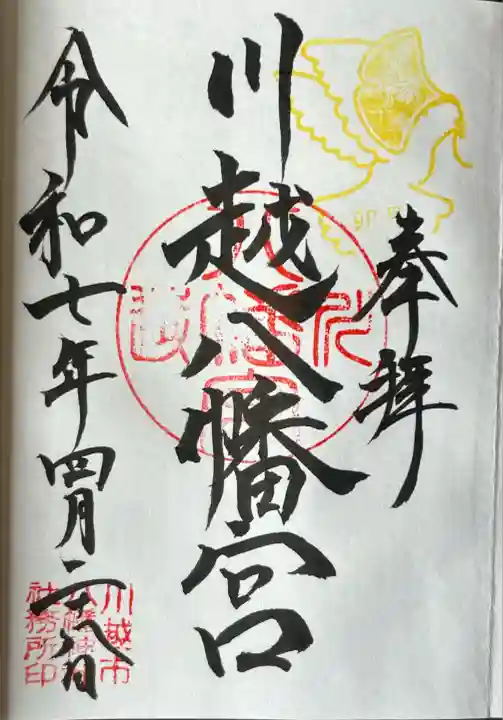 奉拝
川越八幡宮
令和七年四月二十八日
川越市
八幡神社
社務所印